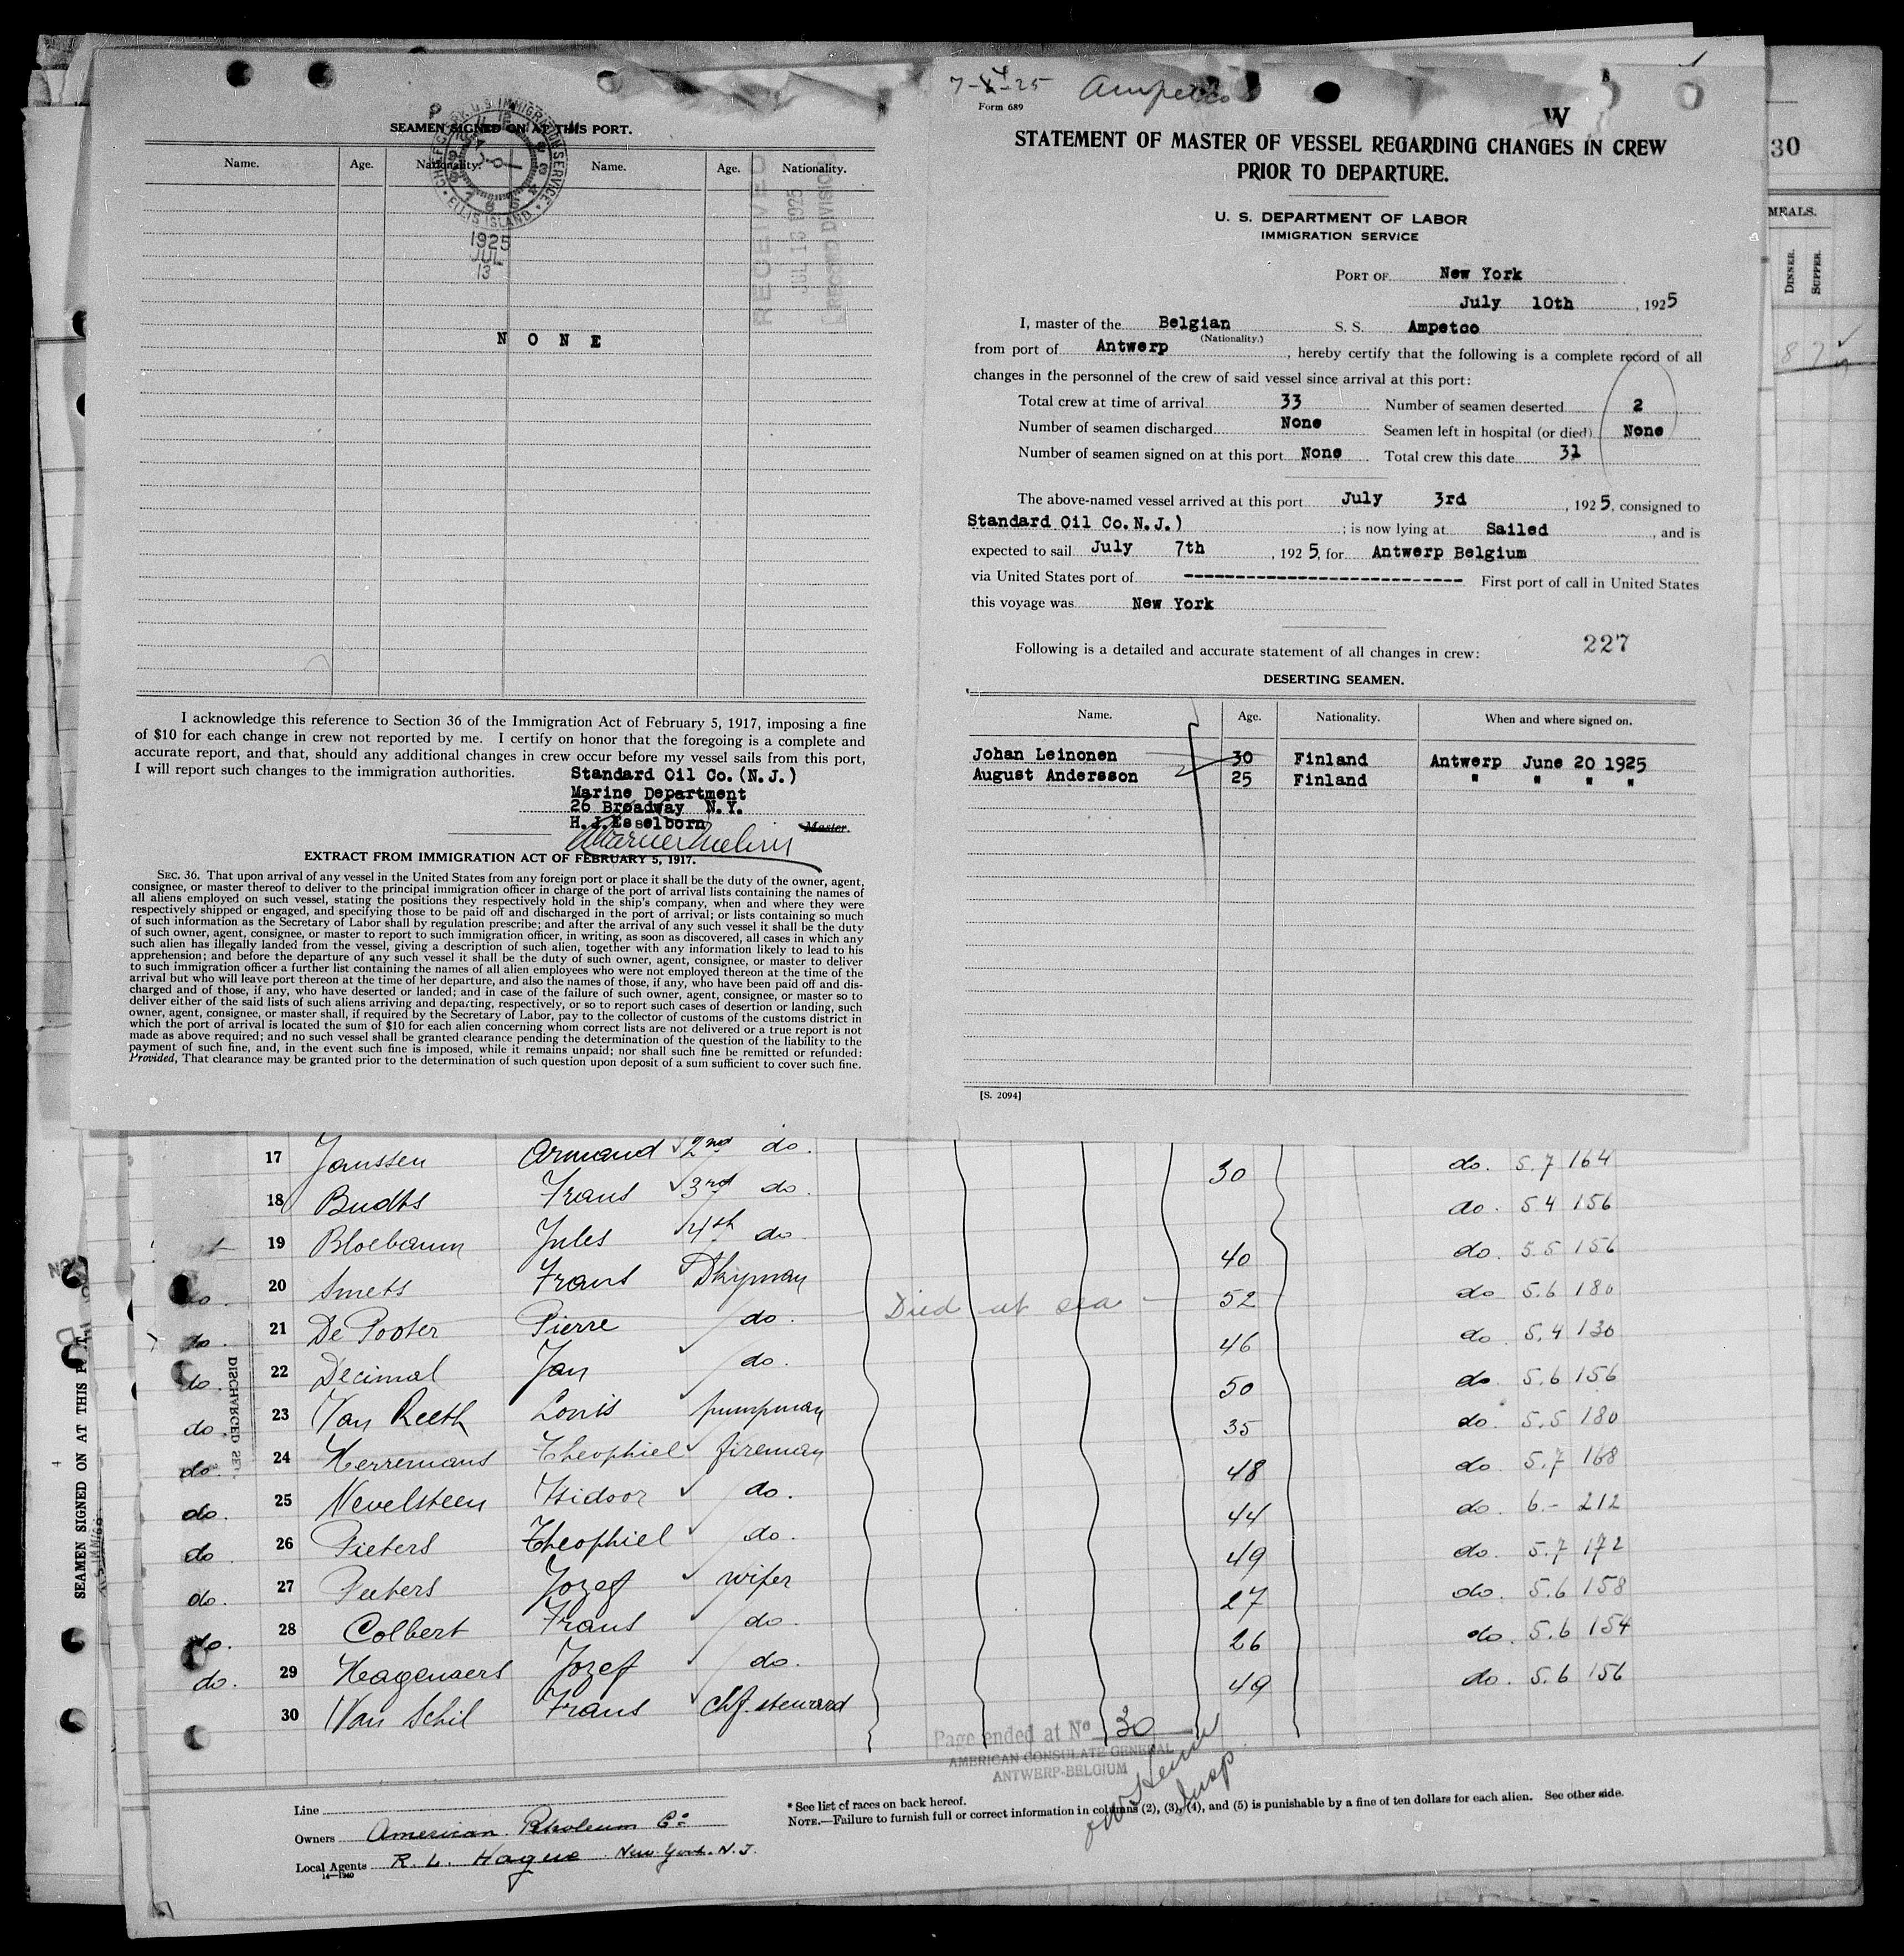 SEAMEN SIGNED ON AT THIS PORT.
Name. Age. Nationality. Name. Age. Nationality.
U.S. IMMIGRATION SERVICE
ELLIS ISLAND
1925
JUL
13
RECEIVED
JUL 13 1925
RECORD DIVISION
NONE
I acknowledge this reference to Section 36 of the Immigration Act of February 5, 1917, imposing a fine
of $10 for each change in crew not reported by me. I certify on honor that the foregoing is a complete and
accurate report, and that, should any additional changes in crew occur before my vessel sails from this port,
I will report such changes to the immigration authorities.
Standard Oil Co. (N.J.)
Marine Department
26 Broadway N.Y.
H.J.Esselborn
Master.
EXTRACT FROM IMMIGRATION ACT OF FEBRUARY 5, 1917.
SEC. 36. That upon arrival of any vessel in the United States from any foreign port or place it shall be the duty of the owner, agent,
consignee, or master thereof to deliver to the principal immigration officer in charge of the port of arrival lists containing the names of
all aliens employed on such vessel, stating the positions they respectively hold in the ship's company, when and where they were
respectively shipped or engaged, and specifying those to be paid off and discharged in the port of arrival; or lists containing so much
of such information as the Secretary of Labor shall by regulation prescribe; and after the arrival of any such vessel it shall be the duty
of such owner, agent, consignee, or master to report to such immigration officer, in writing, as soon as discovered, all cases in which any
such alien has illegally landed from the vessel, giving a description of such alien, together with any information likely to lead to his
apprehension; and before the departure of any such vessel it shall be the duty of such owner, agent, consignee, or master to deliver
to such immigration officer a further list containing the names of all alien employees who were not employed thereon at the time of the
arrival but who will leave port thereon at the time of her departure, and also the names of those, if any, who have been paid off and dis-
charged and of those, if any, who have deserted or landed; and in case of the failure of such owner, agent, consignee, or master so to
deliver either of the said lists of such aliens arriving and departing, respectively, or so to report such cases of desertion or landing, such
owner, agent, consignee, or master shall, if required by the Secretary of Labor, pay to the collector of customs of the customs district in
which the port of arrival is located the sum of $10 for each alien concerning whom correct lists are not delivered or a true report is not
made as above required; and no such vessel shall be granted clearance pending the determination of the question of the liability to the
payment of such fine, and, in the event such fine is imposed, while it remains unpaid; nor shall such fine be remitted or refunded:
Provided, That clearance may be granted prior to the determination of such question upon deposit of a sum sufficient to cover such fine.
Ampetco
Form 689
W
STATEMENT OF MASTER OF VESSEL REGARDING CHANGES IN CREW
PRIOR TO DEPARTURE.
U. S. DEPARTMENT OF LABOR
IMMIGRATION SERVICE
PORT OF New York
July 10th , 1925
I, master of the Belgian S. S. Ampetco
(Nationality.)
from port of Antwerp , hereby certify that the following is a complete record of all
changes in the personnel of the crew of said vessel since arrival at this port:
Total crew at time of arrival 33 Number of seamen deserted 2
Number of seamen discharged None Seamen left in hospital (or died) None
Number of seamen signed on at this port None Total crew this date 31
The above-named vessel arrived at this port July 3rd , 1925, consigned to
Standard Oil Co.N.J.) ; is now lying at Sailed , and is
expected to sail July 7th , 1925, for Antwerp Belgium
via United States port of --------------------------- First port of call in United States
this voyage was New York
Following is a detailed and accurate statement of all changes in crew: 227
DESERTING SEAMEN.
Name. Age. Nationality. When and where signed on.
Johan Leinonen 30 Finland Antwerp June 20 1925
August Andersson 25 Finland " " " "
[S. 2094]
30
MEALS.
DINNER.
SUPPER.
17 Janssen Armand 2nd do. 30 do. 5.7 164
18 Budts Frans 3rd do. do. 5.4 156
19 Bloebaum Jules 4th do 40 do. 5.5 156
do. 20 Smets Frans Dkyman 52 do 5.6 180
do. 21 De Pooter Pierre do. Died at sea 46 do. 5.4 130
do. 22 Decimal Jan do. 50 do. 5.6 156
do. 23 Van Reeth Louis pumpman 35 do. 5.5 180
do. 24 Herremans Theophiel fireman 48 do 5.7 168
do. 25 Nevelsteen Isidoor do. 44 do 6.- 212
do 26 Pieters Theophiel do. 49 do. 5.7 172
do. 27 Peeters Jozef wiper 27 do. 5.6 158
do. 28 Colbert Frans do. 26 do. 5.6 154
do. 29 Hagenaers Jozef do. 49 do. 5.6 156
30 Van Schil Frans chf. steward
SEAMEN SIGNED ON AT THIS
DISCHARGED
Page ended at No 30
AMERICAN CONSULATE GENERAL
ANTWERP-BELGIUM
Insp
Line
Owners American Petroleum Co
Local Agents R. L. Hague New York. N.J.
14—1240
* See list of races on back hereof.
NOTE.—Failure to furnish full or correct information in columns (2), (3), (4), and (5) is punishable by a fine of ten dollars for each alien. See other side.